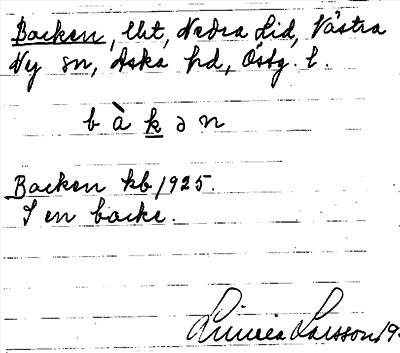 Backen, lht, Nedra Lid, Västra
Ny sn, Aska hd, Östg. l.
b à k ə n
Backen kb 1925.
I en backe.
Linnea Larsson 19